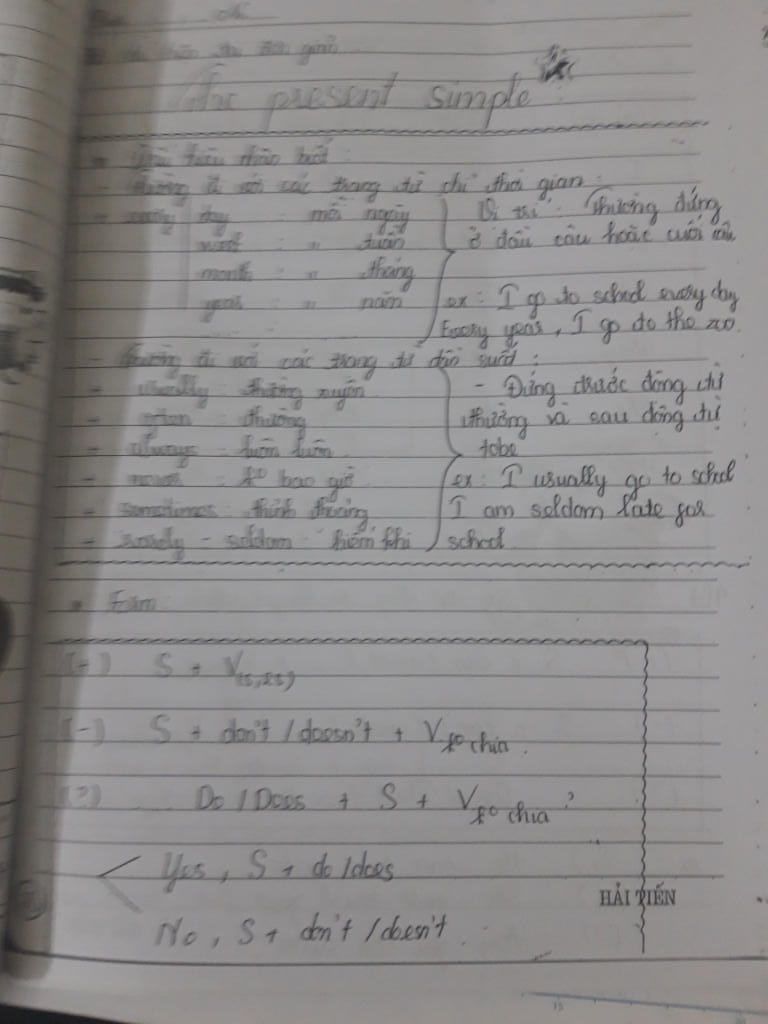 đơn giản
The present simple
* Dấu hiệu nhận biết :
- thường đi với các trạng từ chỉ thời gian :
- every day : mỗi ngày
week : " tuần
month : " tháng
year : " năm
Vị trí : Thường đứng
ở đầu câu hoặc cuối câu
ex : I go to school every day
Every year, I go to the zoo.
- thường đi với các trạng từ tần suất :
- usually : thường xuyên
- often : thường
- always : luôn luôn
- never : ko bao giờ
- sometimes : thỉnh thoảng
- rarely - seldom - hiếm khi
- Đứng trước động từ
thường và sau động từ
tobe
ex : I usually go to school
I am seldom late for
school
* Form
(+) S + V(s,es)
(-) S + don't / doesn't + Vko chia.
(?) Do / Does + S + Vko chia ?
Yes, S + do/does
No, S + don't / doesn't.
HẢI TIẾN
15